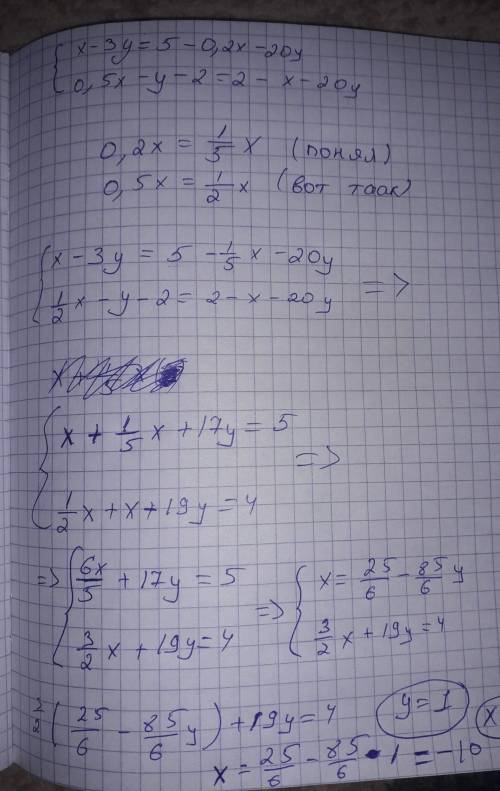 { x-3y=5-0,2x-20y
0,5x-y-2=2-x-20y
0,2x = 1/5 x (понял)
0,5x = 1/2 x (вот таак)
{ x-3y = 5 -1/5 x -20y
1/2 x -y-2= 2-x-20y =>
{ x + 1/5 x +17y = 5
1/2 x+x+19y=4 =>
=> { 6x/5 + 17y = 5
3/2 x + 19y=4
=> { x= 25/6 - 85/6 y
3/2 x+19y=4
3/2 ( 25/6 - 85/6 y ) +19y=4 y=1
x= 25/6 - 85/6 • 1 = -10 x